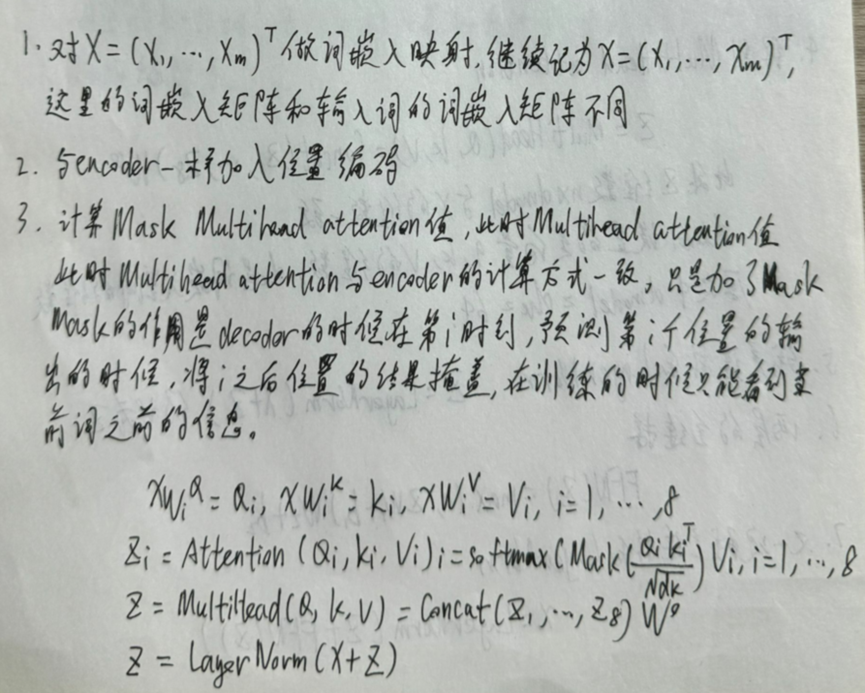 1. 对X=(x₁,…,xₘ)ᵀ做词嵌入映射,继续记为X=(x₁,…,xₘ)ᵀ,
这里的词嵌入矩阵和输入词的词嵌入矩阵不同
2. 与encoder一样加入位置编码
3. 计算Mask Multihead attention值,此时Multihead attention值
此时Multihead attention与encoder的计算方式一致,只是加了Mask
Mask的作用是decoder的时候在第i时刻,预测第i个位置的输
出的时候,将i之后位置的结果掩盖,在训练的时候只能看到当
前词之前的信息。
XWᵢ^Q=Qᵢ, XWᵢ^K=Kᵢ, XWᵢ^V=Vᵢ, i=1,…,8
Zᵢ=Attention(Qᵢ,Kᵢ,Vᵢ)ᵢ=softmax(Mask(QᵢKᵢᵀ/√dk)Vᵢ, i=1,…,8
Z=MultiHead(Q,K,V)=Concat(Z₁,…,Z₈)W⁰
Z=LayerNorm(X+Z)